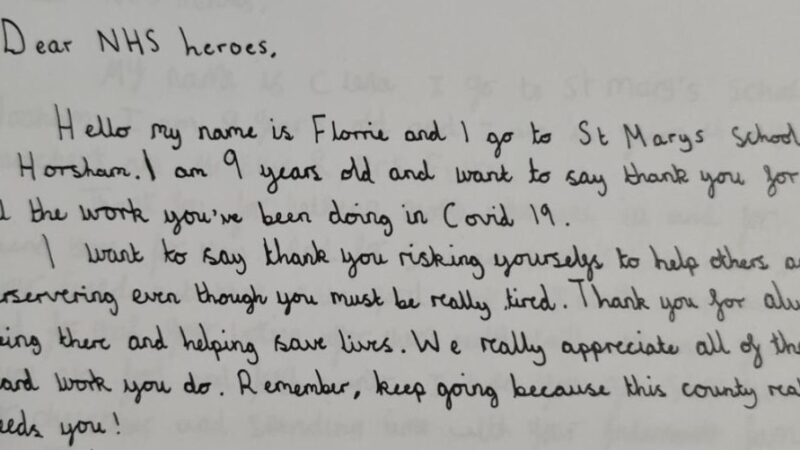 Dear NHS heroes,
Hello my name is Florrie and I go to St Marys School
Horsham. I am 9 years old and want to say thank you for
the work you've been doing in Covid 19.
I want to say thank you risking yourselfs to help others a
rservering even though you must be really tired. Thank you for alw
ing there and helping save lives. We really appreciate all of the
ard work you do. Remember, keep going because this county real
eeds you!